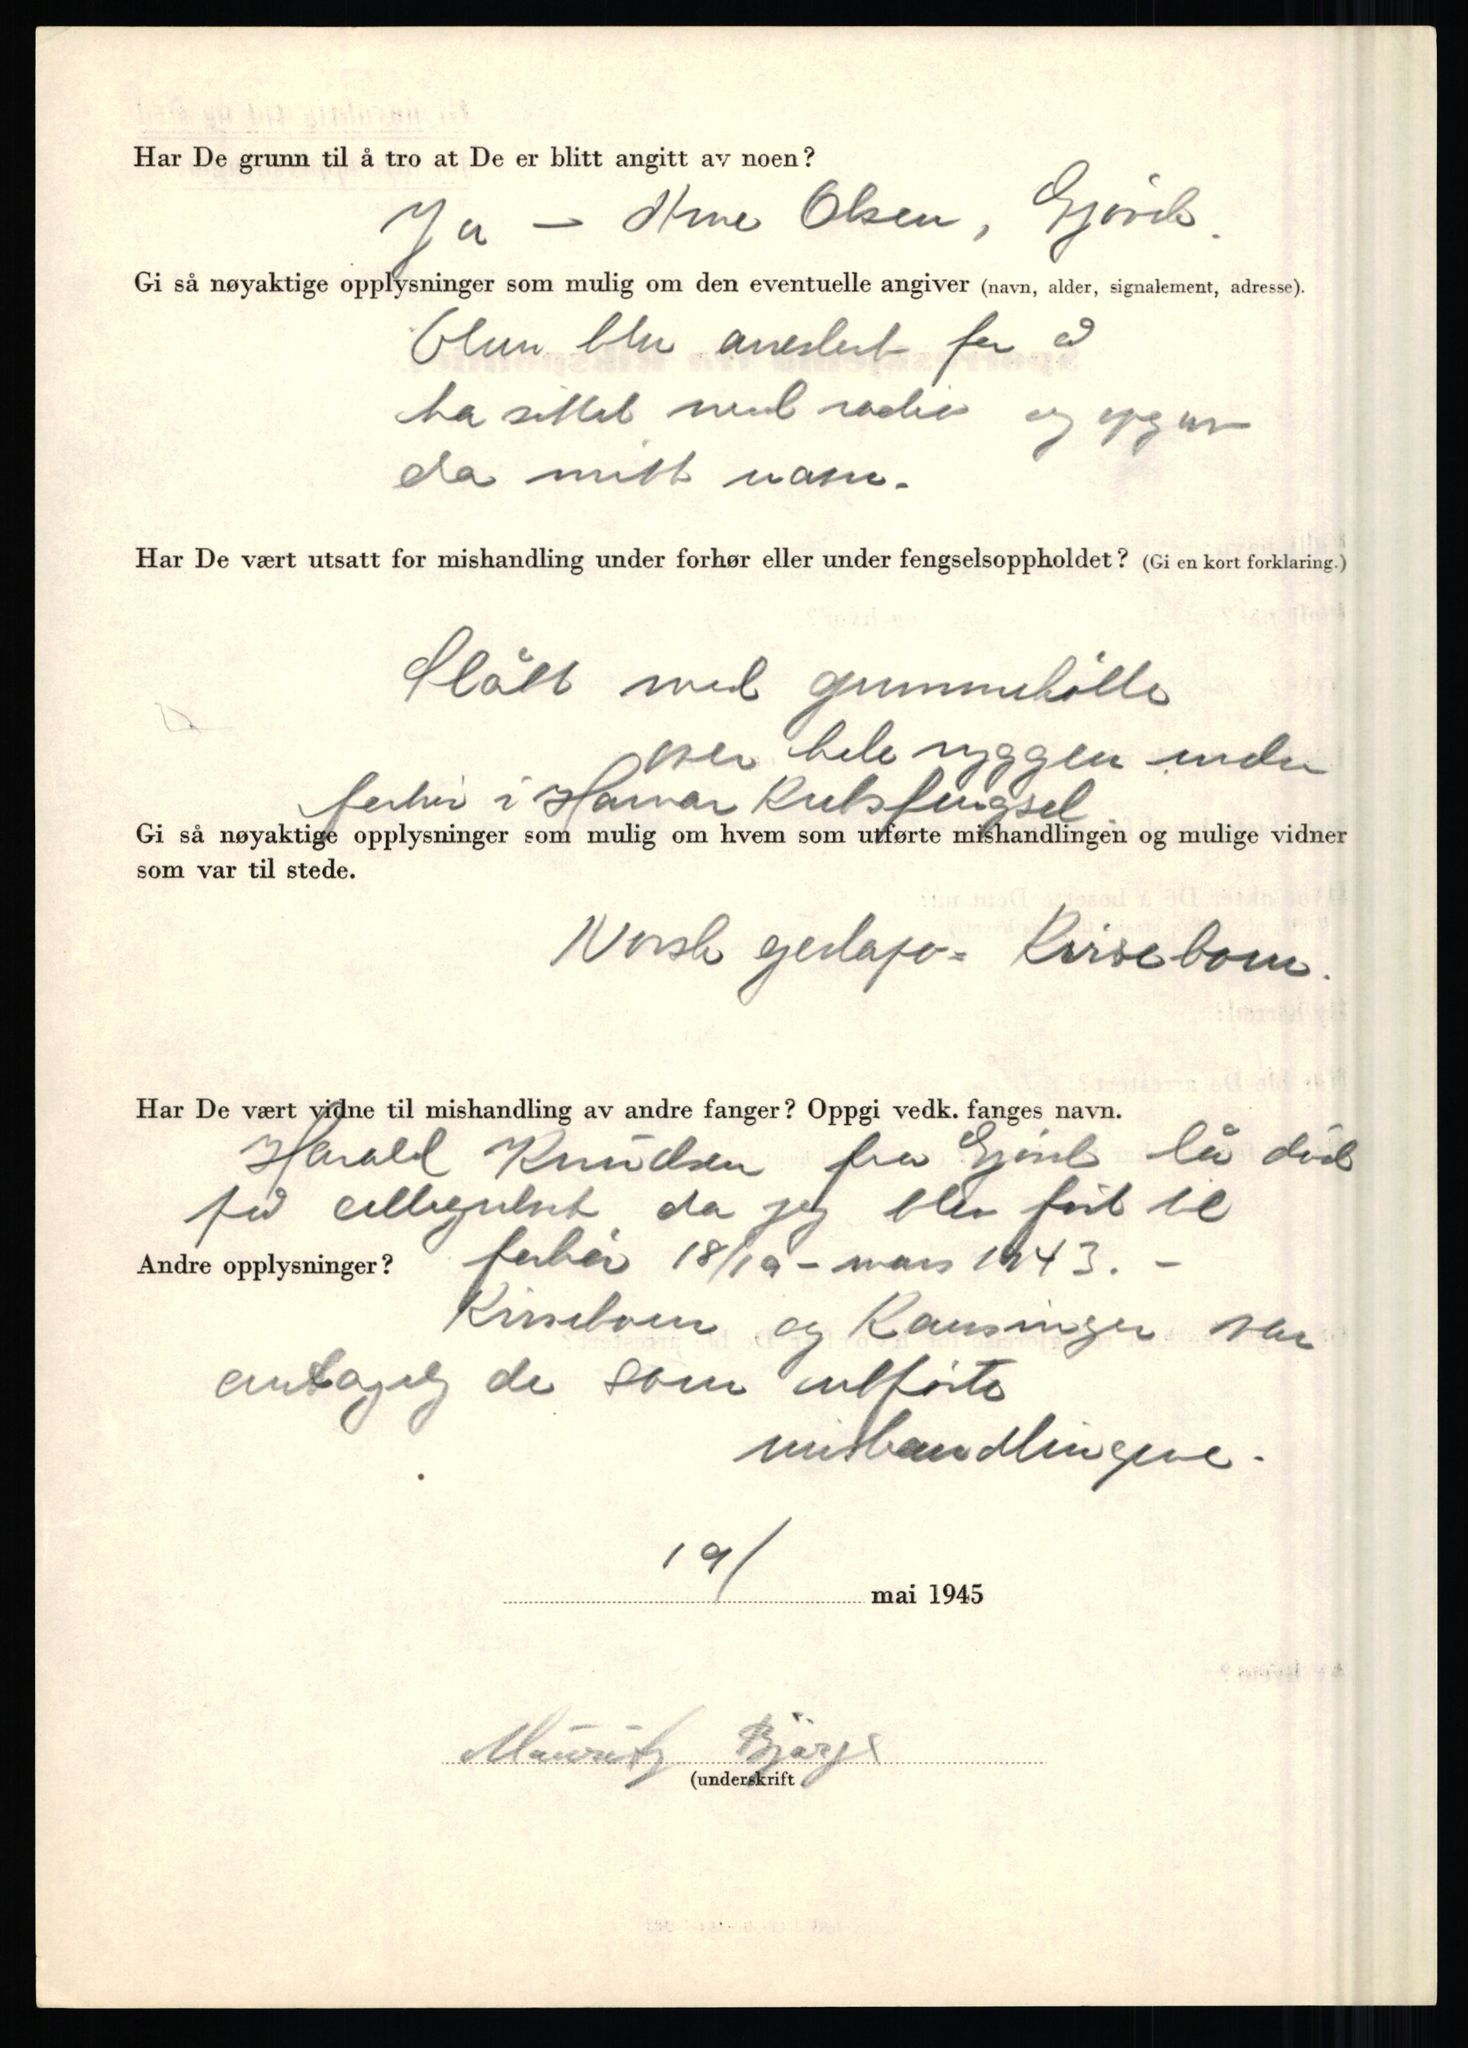 Har De grunn til å tro at De er blitt angitt av noen?
Ja – Arne Olsen, Gjövik.
Gi så nøyaktige opplysninger som mulig om den eventuelle angiver (navn, alder, signalement, adresse).
blev arrestert for å
ha sittet med radio og opgav
da mitt navn.
Har De vært utsatt for mishandling under forhør eller under fengselsoppholdet? (Gi en kort forklaring.)
Slått med gummikölle
over hele ryggen under
forhör i Hamar Kretsfengsel.
Gi så nøyaktige opplysninger som mulig om hvem som utførte mishandlingen og mulige vidner
som var til stede.
Norsk gestapo- Kirsebom.
Har De vært vidne til mishandling av andre fanger? Oppgi vedk. fanges navn.
Harald Knudsen fra Gjövik lå död
på cellegulvet da jeg blev fört til
Andre opplysninger? forhör 18/19 – mars 1943. –
Kirsebom og var
antagelig de som utförte
mishandlingene.
19/ mai 1945
Mauritz
(underskrift